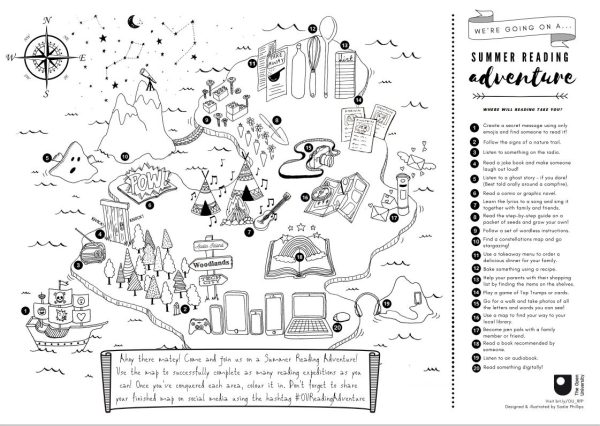 WE'RE GOING ON A...
SUMMER READING
adventure
WHERE WILL READING TAKE YOU?
1 Create a secret message using only
emojis and find someone to read it!
2 Follow the signs of a nature trail.
3 Listen to something on the radio.
4 Read a joke book and make someone
laugh out loud!
5 Listen to a ghost story - if you dare!
(Best told orally around a campfire).
6 Read a comic or graphic novel.
7 Learn the lyrics to a song and sing it
together with family and friends.
8 Read the step-by-step guide on a
packet of seeds and grow your own!
9 Follow a set of wordless instructions.
10 Find a constellations map and go
stargazing!
11 Use a takeaway menu to order a
delicious dinner for your family.
12 Bake something using a recipe.
13 Help your parents with their shopping
list by finding the items on the shelves.
14 Play a game of Top Trumps or cards.
15 Go for a walk and take photos of all
the letters and words you can see!
16 Use a map to find your way to your
local library.
17 Become pen pals with a family
member or friend.
18 Read a book recommended by
someone.
19 Listen to an audiobook.
20 Read something digitally!
The Open
University
Visit bit.ly/OU_RfP
Designed & illustrated by Sadie Phillips
N
W
E
S
POW!
KNOCK!
Woodlands
Ahoy there matey! Come and join us on a Summer Reading Adventure!
Use the map to successfully complete as many reading expeditions as you
can! Once you've conquered each area, colour it in. Don't forget to share
your finished map on social media using the hashtag #OUReadingAdventure